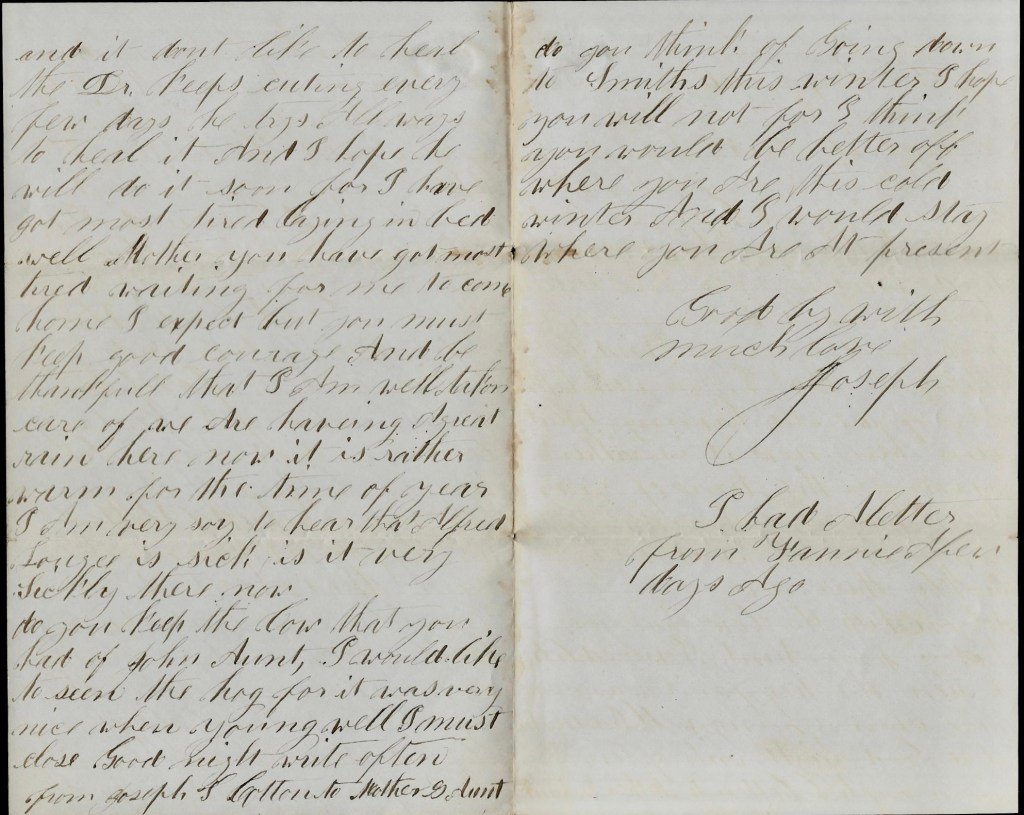 and it dont like to heal
the Dr. keeps cuting every
few days he trys All ways
to heal it And I hope he
will do it soon for I have
got most tired laying in bed
well Mother you have got most
tired waiting for me to come
home I expect but you must
keep good courage And be
thankfull that I Am well taken
care of we Are haveing A great
rain here now it is rather
warm for the time of year
I Am very sory to hear that Alfred
is sick is it very
Sickly there now
do you keep the Cow that you
had of John Aunt, I would like
to seen the hog for it was very
nice when young well I must
close Good night write often
from Joseph S Cotton to Mother & Aunt
do you think of Going down
to Smiths this winter I hope
you will not for I think
you would be better off
where you Are this cold
winter And I would stay
where you Are At present
Good by with
much love
Joseph
I had A letter
from Fannie A few
days Ago